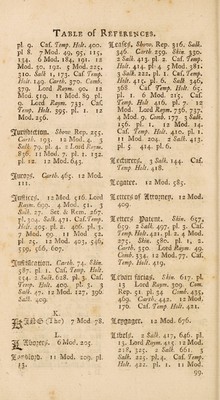 TABLE OF REFERENCES.
pl. 9. Caf. Temp. Holt. 400.
pl. 8 7 Mod. 49, 97, 115,
134. 6 Mod. 184, 191. 12
Mod. 30, 192. 5 Mod. 225,
310. Salk. 1, 173. Caf. Temp.
Holt. 149. Carth. 370. Comb.
379. Lord Raym. 90. 12
Mod. 519. 11 Mod. 89 pl.
6. Lord Raym. 731. Caf.
Temp. Holt. 395. pl. 1. 12
Mod. 256.
Jurisdiction. Show. Rep. 255.
Carth. 193. 1 2 4 6 3
Salk. 79. pl. 4. 2 Lord Raym.
836. 11 Mod. 7. pl. 1. 132.
pl. 12. 12 Mod. 643.
Jurors. Carth. 465. 12 Mod.
111.
Justices. 12 Mod. 516. Lord
Raym. 690. 4 Mod. 51. 3
Salk. 27. Set. & Rem. 267.
pl. 304. Salk. 471. Caf. Temp.
Holt. 405. pl. 2. 406. pl. 3.
7 Mod. 99. 11 Mod. 52.
pl. 25. 12 Mod. 403, 546,
559, 566, 607.
Justification. Carth. 74. Skin.
387. pl. 1. Caf. Temp. Holt.
524. 2 Salk. 628. pl. 3. Caf.
Temp. Holt. 409. pl. 3. 3
Salk. 47. 12 Mod. 127, 396
Salk. 409.
K.
KING (The) 7 Mod. 78.
L.
Laborers. 6 Mod. 205.
Landlord. 11 Mod. 209. pl.
13.
Leases. Show. Rep. 316. Salk.
346. Carth. 259. Skin. 330.
2 Salk. 413. pl. 2. Caf. Temp.
Holt. 414. pl. 4. 5 Mod. 381.
3 Salk. 222. pl. 1. Caf. Temp.
Holt. 415. pl. 6. Salk. 346,
368. Caf. Temp. Holt. 65.
pl. 1. 6 Mod. 215. Caf.
Temp. Holt 416. pl. 7. 12
Mod. Lord Raym. 736, 737.
4 Mod. 9. Comb. 173. 3 Salk.
156. pl. 1. 12 Mod. 14.
Caf. Temp. Holt. 410. pl. 1.
11 Mod. 209. 2 Salk. 413.
pl. 5. 414. pl. 6.
Lecturers. 3 Salk. 144. Caf.
Temp. Holt. 418.
Legatee. 12 Mod. 585.
Letters of Attorney. 12 Mod.
409
Letters Patent. Skin. 657,
659. 2 Salk. 497. pl. 3. Caf.
Temp. Holt. 421. pl. 2. 4 Mod.
275. Skin. 580. pl. 1, 2.
Carth. 350. Lord Raym. 49.
Comb. 334. 12 Mod. 77. Caf.
Temp. Holt. 419.
Levari facias. Skin. 617. pl.
13 Lord Raym. 309. Com.
Rep. 51. pl. 34. Comb. 433,
469. Carth. 442. 12 Mod.
176. Caf. Temp. Holt. 421.
Leygager. 12 Mod. 676.
Libels. 2 Salk. 417, 646. pl.
13. Lord Raym. 415. 12 Mod.
218, 327. 2 Salk. 661. 3
Salk. 225. pl. 4. Caf. Temp.
Holt. 422. pl. 1. 11 Mod.
99.